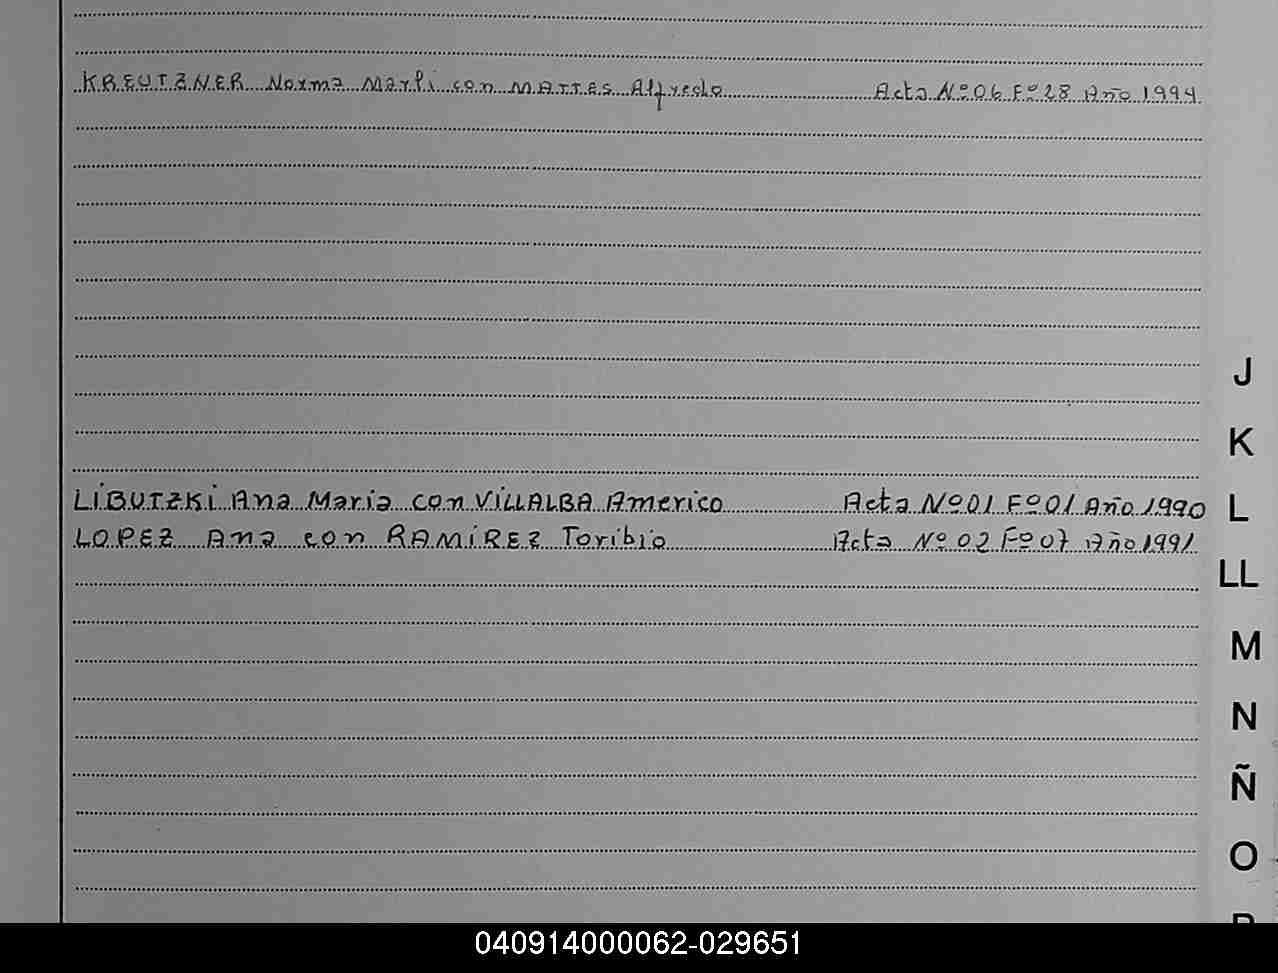 KREUTZNER Norma Marli con MATTES Alfredo Acta Nº 06 Fº 28 Año 1994
J
K
LIBUTZKI Ana Maria con VILLALBA Americo Acta Nº 01 Fº 01 Año 1990
L
LOPEZ Ana con RAMIREZ Toribio Acta Nº 02 Fº 07 Año 1991
LL
M
N
Ñ
O
040914000062-029651